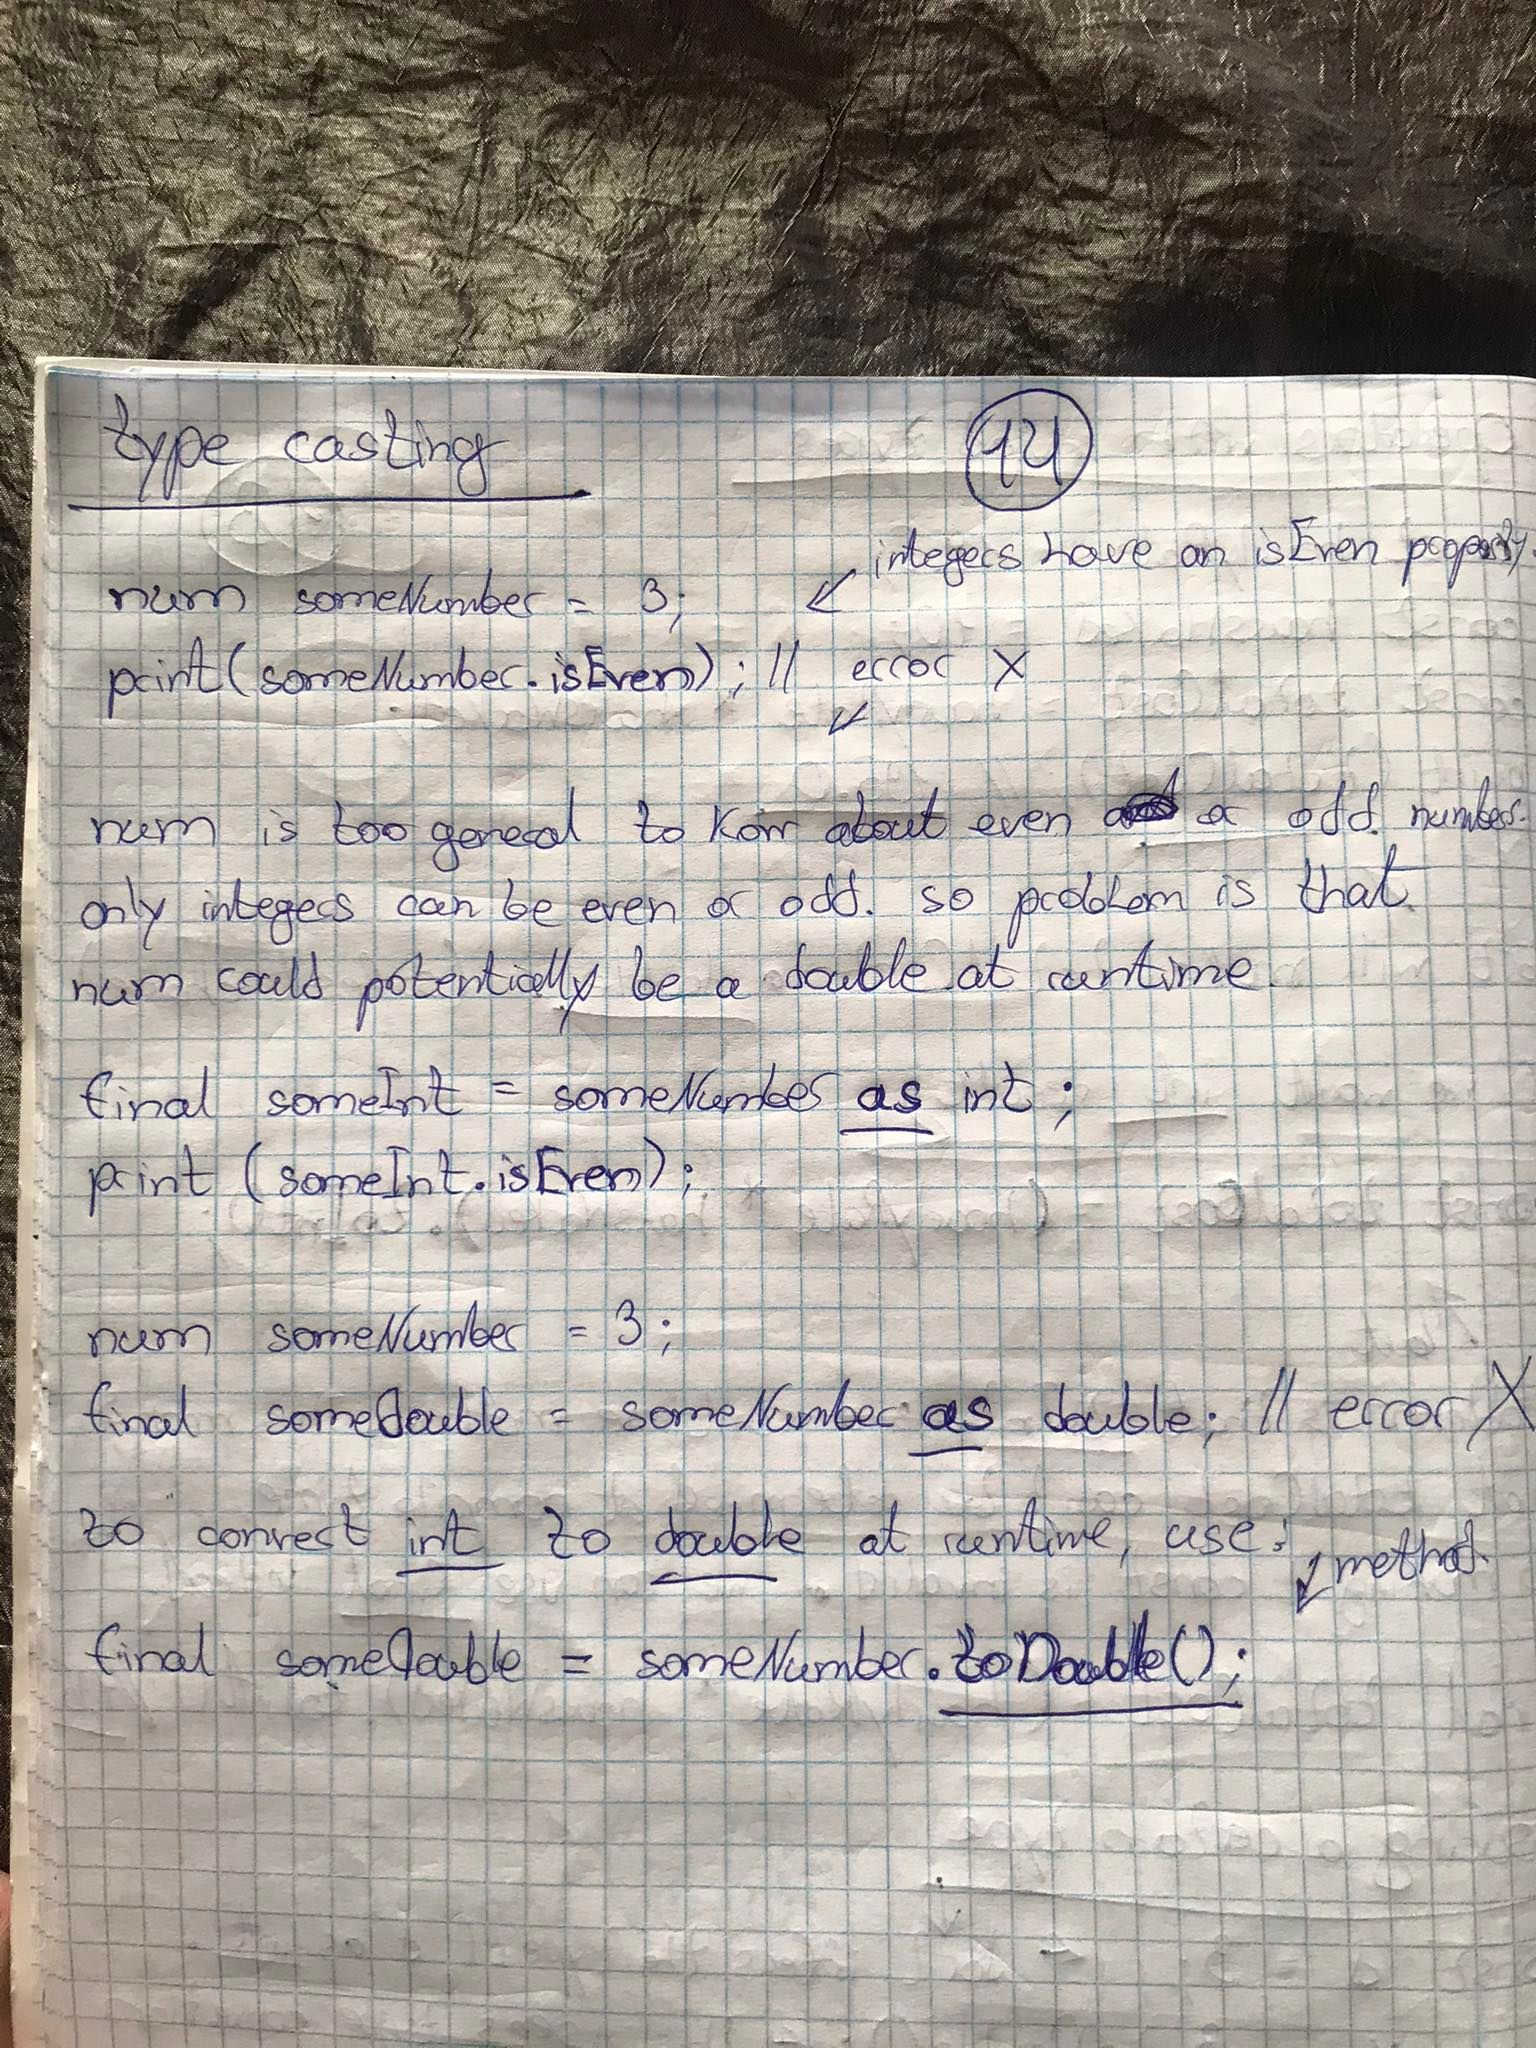 type casting
14
integers have an isEven property.
num someNumber = 3;
print(someNumber.isEven); // error X
num is too general to kow about even or odd numbers.
only integers can be even or odd. so problem is that
num could potentially be a double at runtime.
final someInt = someNumber as int;
print (someInt.isEven);
num someNumber = 3;
final someDouble = someNumber as double; // error X
to convert int to double at runtime, use:
method
final someDouble = someNumber.toDouble();